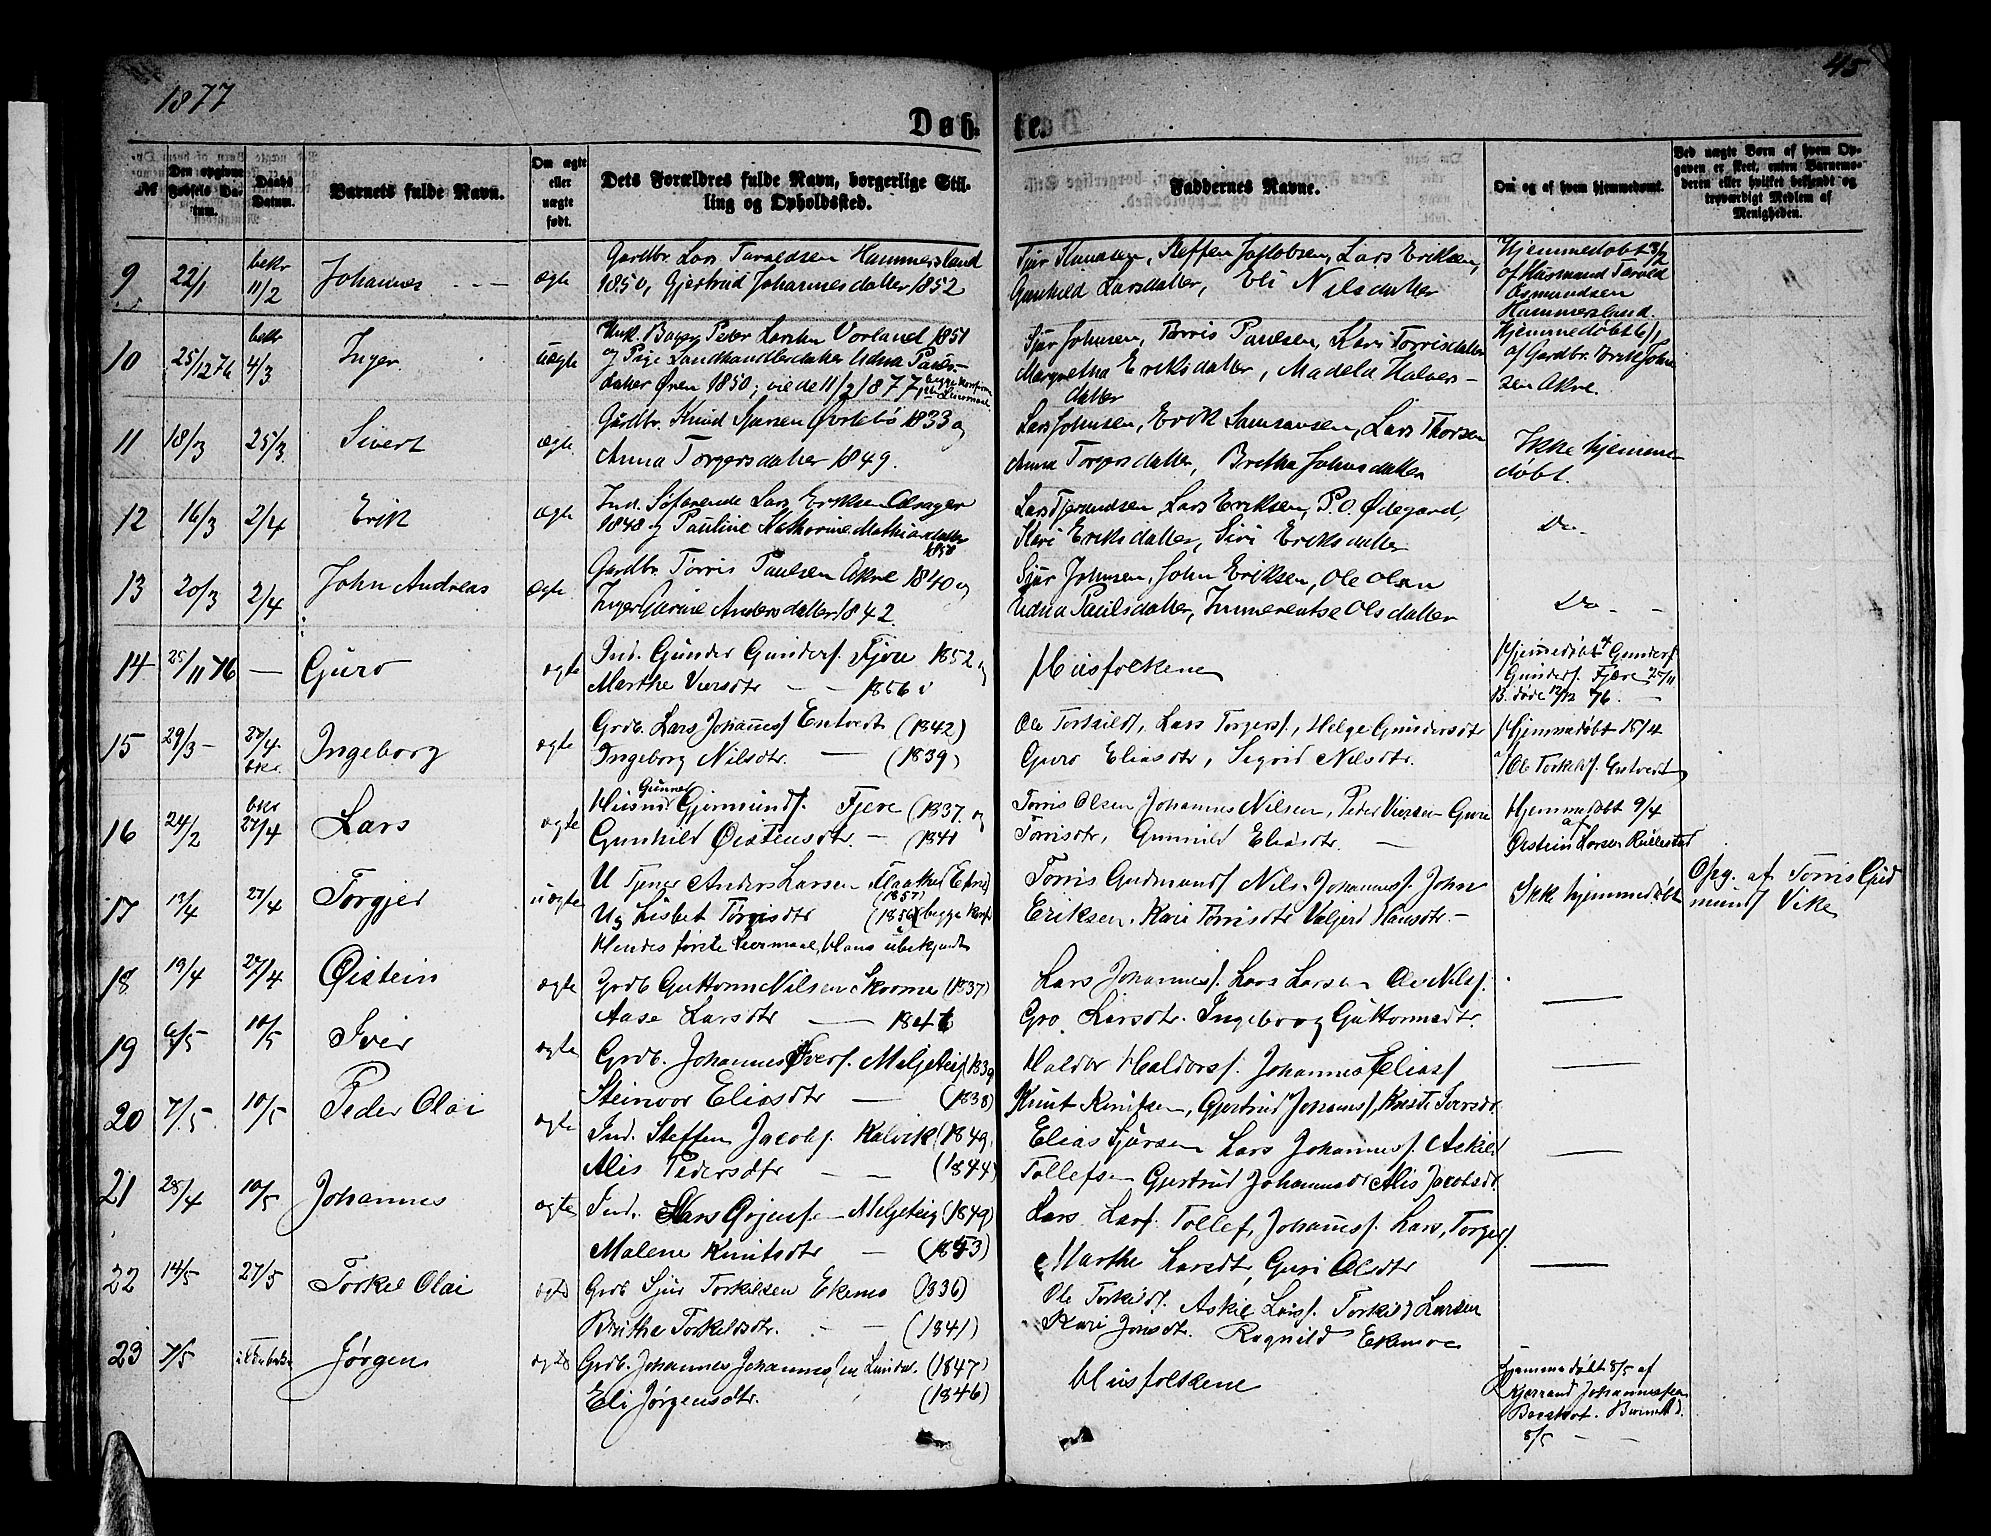 1877
45
Døb-
te.
№
Den opgivne Fødsels Datum.
Daabs Datum.
Barnets fulde Navn.
Om ægte eller uægte født.
Dets Forældres fulde Navn, borgerlige Stilling og Opholdssted.
Faddernes Navne.
Om og af hvem hjemmedøbt.
Ved uægte Børn af hvem Opgaven er skeet, enten Barnemoderen eller hvilket bekjendt og troværdigt Medlem af Menigheden.
9 22/1 bekr 11/2 Johannes ægte
Gardbr. Lars Taraldsen Hammersland
1850, Gjertrud Johannesdatter 1852
Steffen Jakobsen, Lars Eriksen,
Gunhild Larsdatter, Eli Nilsdatter
Hjemmedøbt
af Husmand Tarald
Osmundsen
Hammersland.
10 25/12 76 bekr 4/3 Inger uægte
Ungk. Peder Larsen Vorland 1851
og Pige Landhandlerdatter Udna Pauls-
datter Øren 1850; viede 11/2 1877,
Sjur Johnsen, Torris Paulsen, Kari Torrisdatter
Margretha Eriksdatter, Madela Halvors-
datter
Hjemmedøbt 6/1
af Gardbr. Erik John
sen Akre.
11 18/3 25/3 Sivert ægte
Gardbr. Knud Sjursen Øvrebø 1833 og
Anna Torgersdatter 1849.
Lars Johnsen, Erik Samsonsen, Lars Thorsen
Anna Torgersdatter, Bretha Johnsdatter
Ikke hjemme-
døbt.
12 16/3 2/4 Erik ægte
Ind. Søfarende Lars Eriksen
1848 og Pauline Katharine Mathiasdatter
1850
Lars Eriksen, P. O. Ødegard,
Kari Eriksdatter, Siri Eriksdatter
Do
13 20/3 2/4 John Andreas ægte
Gardbr. Torris Paulsen Akre 1840 og
Inger Garine Andersdatter 1842.
Sjur Johnsen, John Eriksen, Ole Olsen
Udna Paulsdatter, Immerentse Olsdatter
Do -
14 25/11 76 — Guro ægte
Ind. Gunder Gunders. Fjære 1852 og
Marthe Viersdtr — 1856
Husfolkene
Hjemmedøbt af Gunder
Gunders. Fjære 25/11
B. døde 12/12 76.
15 29/3 - 27/4 bekr. Ingeborg ægte
Grdb. Lars Johannes. Entvedt (1842)
Ingeborg Nilsdtr. — (1839)
Ole Torkilds, Lars Torgers., Helge Gundersdtr
Guro Eliasdtr, Sigrid Nilsdtr.
Hjemmedøbt 15/4
af Ole Torkels. Entvedt
16 24/2 bekr 27/4 Lars ægte
Husm. Gunnar Gjermunds. Fjære (1837. og
Gunhild Øistensdtr. - (1841
Torris Olsen Johannes Nilsen, Peder Viersen Guri
Torrisdtr, Gunnild Eliasdtr. —
Hjemmedøbt 9/4
af
Øistein Larsen Rullestad
17 13/4 27/4 Torgjer uægte
U Tjener Anders Larsen (1857)
Ug Lisbet Torrisdtr (1856) begge Konf
Hendes første Leiermaal, Hans ubekjendt
Torris Gudmunds Nils Johannes. John
Eriksen. Kari Torrisdtr Valgjerd Hansdtr. -
Ikke hjemmedøbt
Opg. af Torris Gud
munds Vike
18 13/4 27/4 Øistein ægte
Grdb Guttorm Nilsen Skromme (1837)
Aase Larsdtr — 1846
Lars Johannes. Lars Larsen Ole Nils.
Gro Larsdtr. Ingeborg Guttormsdtr.
—
19 6/5 10/5 Iver ægte
Grdb. Johannes Ivers. Miljeteig (1839
Steinvor Eliasdtr — (1838)
Haldor Haldors. Johannes Elias
Knut Knutsen, Gjertrud Johannes, Kriste Iversdtr
—
20 7/5 10/5 Peder Olai ægte
Ind. Steffen Jacobs. Kalvik (1849.
Alis Pedersdtr — (1844)
Elias Sjursen Lars Johannes. Askild
Tollefsen Gjertrud Johannesdtr Alis Jacobsdtr
—
21 28/4 10/5 Johannes ægte
Ind. Lars Miljeteig (1849)
Malene Knutsdtr — (1853)
Lars Lars. Tollef Johannes. Lars Torgers.
Marthe Larsdtr, Guri Olsdtr
—
22 14/5 27/5 Torkel Olai ægte
Grdb Sjur Torkildsen Ekemo (1836)
Brithe Torkildsdtr. — (1841)
Ole Torkilds. Askil Lars. Torkild Larsen
Kari Jonsdtr. Ragnild Ekemo
23 7/5 Jørgen ægte
Grdb. Johannes Johannessen (1847)
Eli Jørgensdtr. (1846)
Husfolkene
Hjemmedøbt 8/5 af
Johannessen
8/5 — —